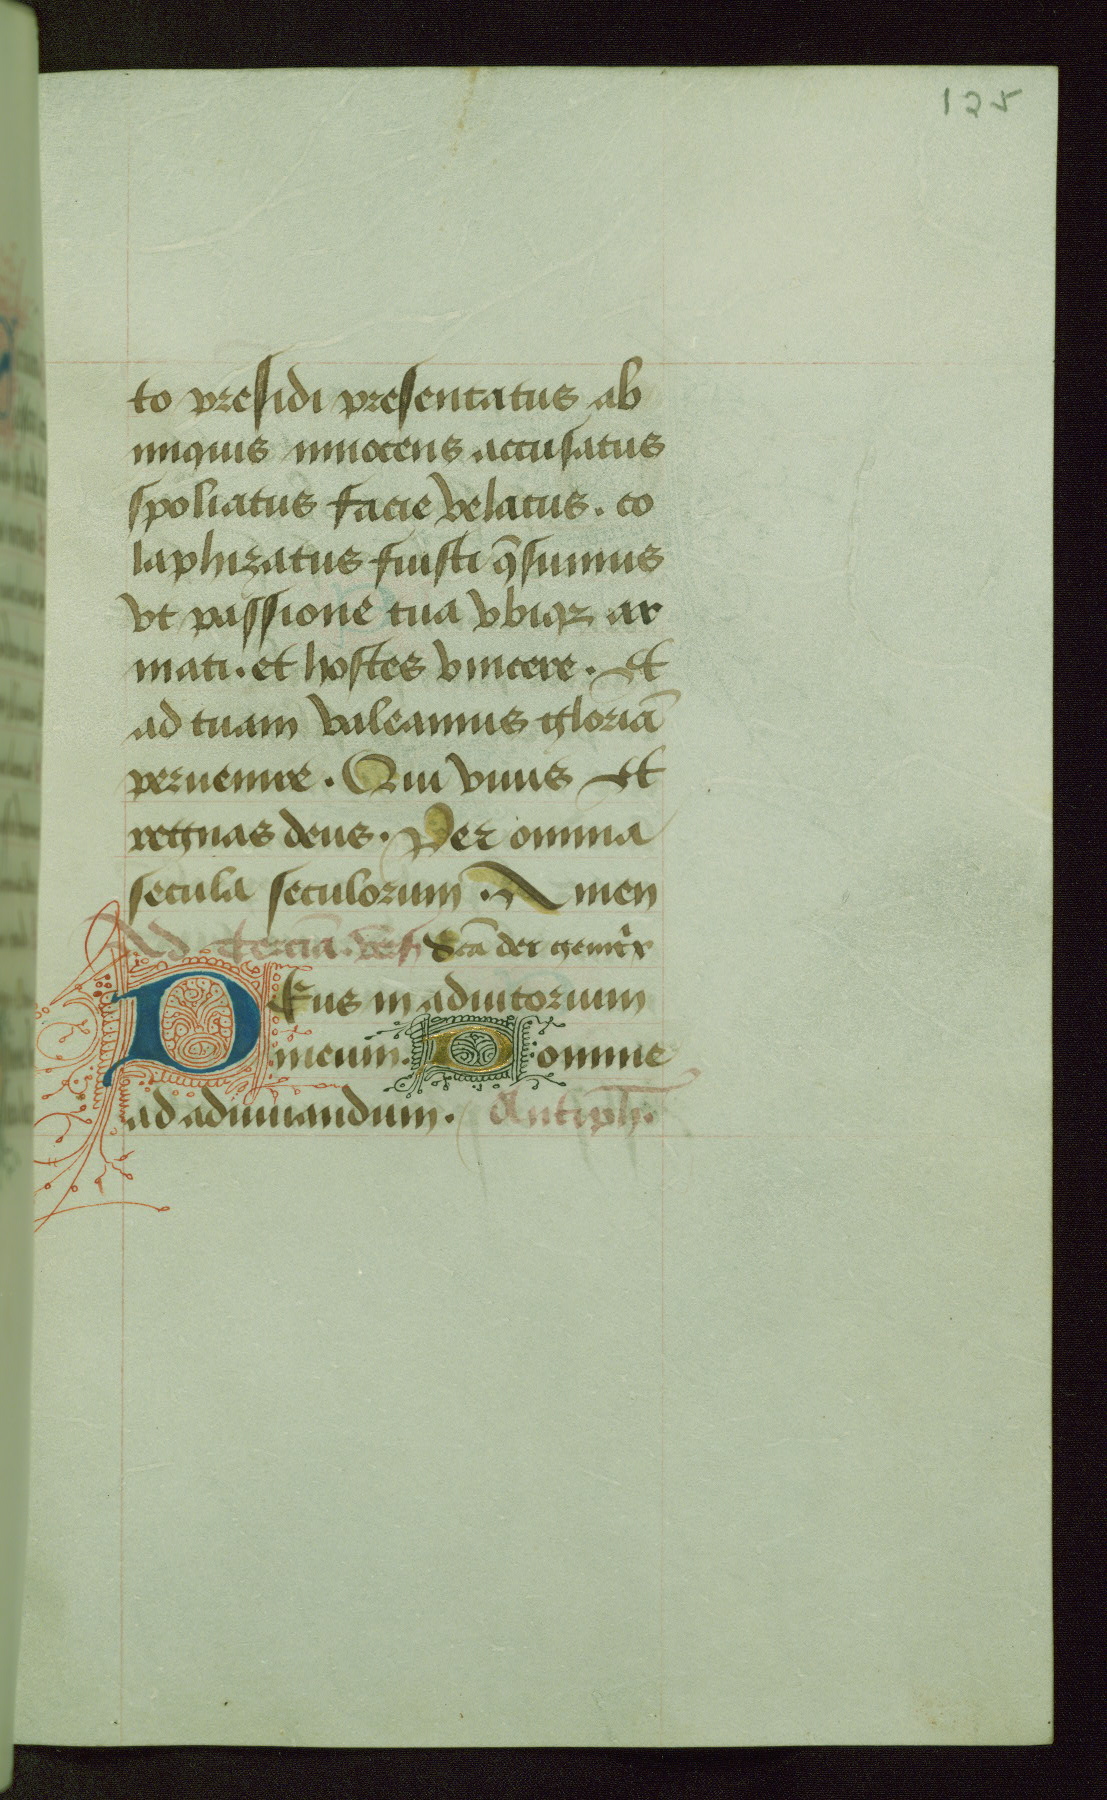 125
to presidi presentatus ab
iniquis innocens accusatus
spoliatus facie velatus. co
laphizatus fuisti q̄sumus
vt passione tua vbiqꝫ ar
mati. et hostes vincere. Et
ad tuam valeamus gloriā
peruenire. Qui viuis Et
regnas deus. Per omnia
secula seculorum. Amen
Ad terciā. vers Scā dei genitrix
DEus in adiutorium
meum. Domine
ad adiuuandum. Antiph.